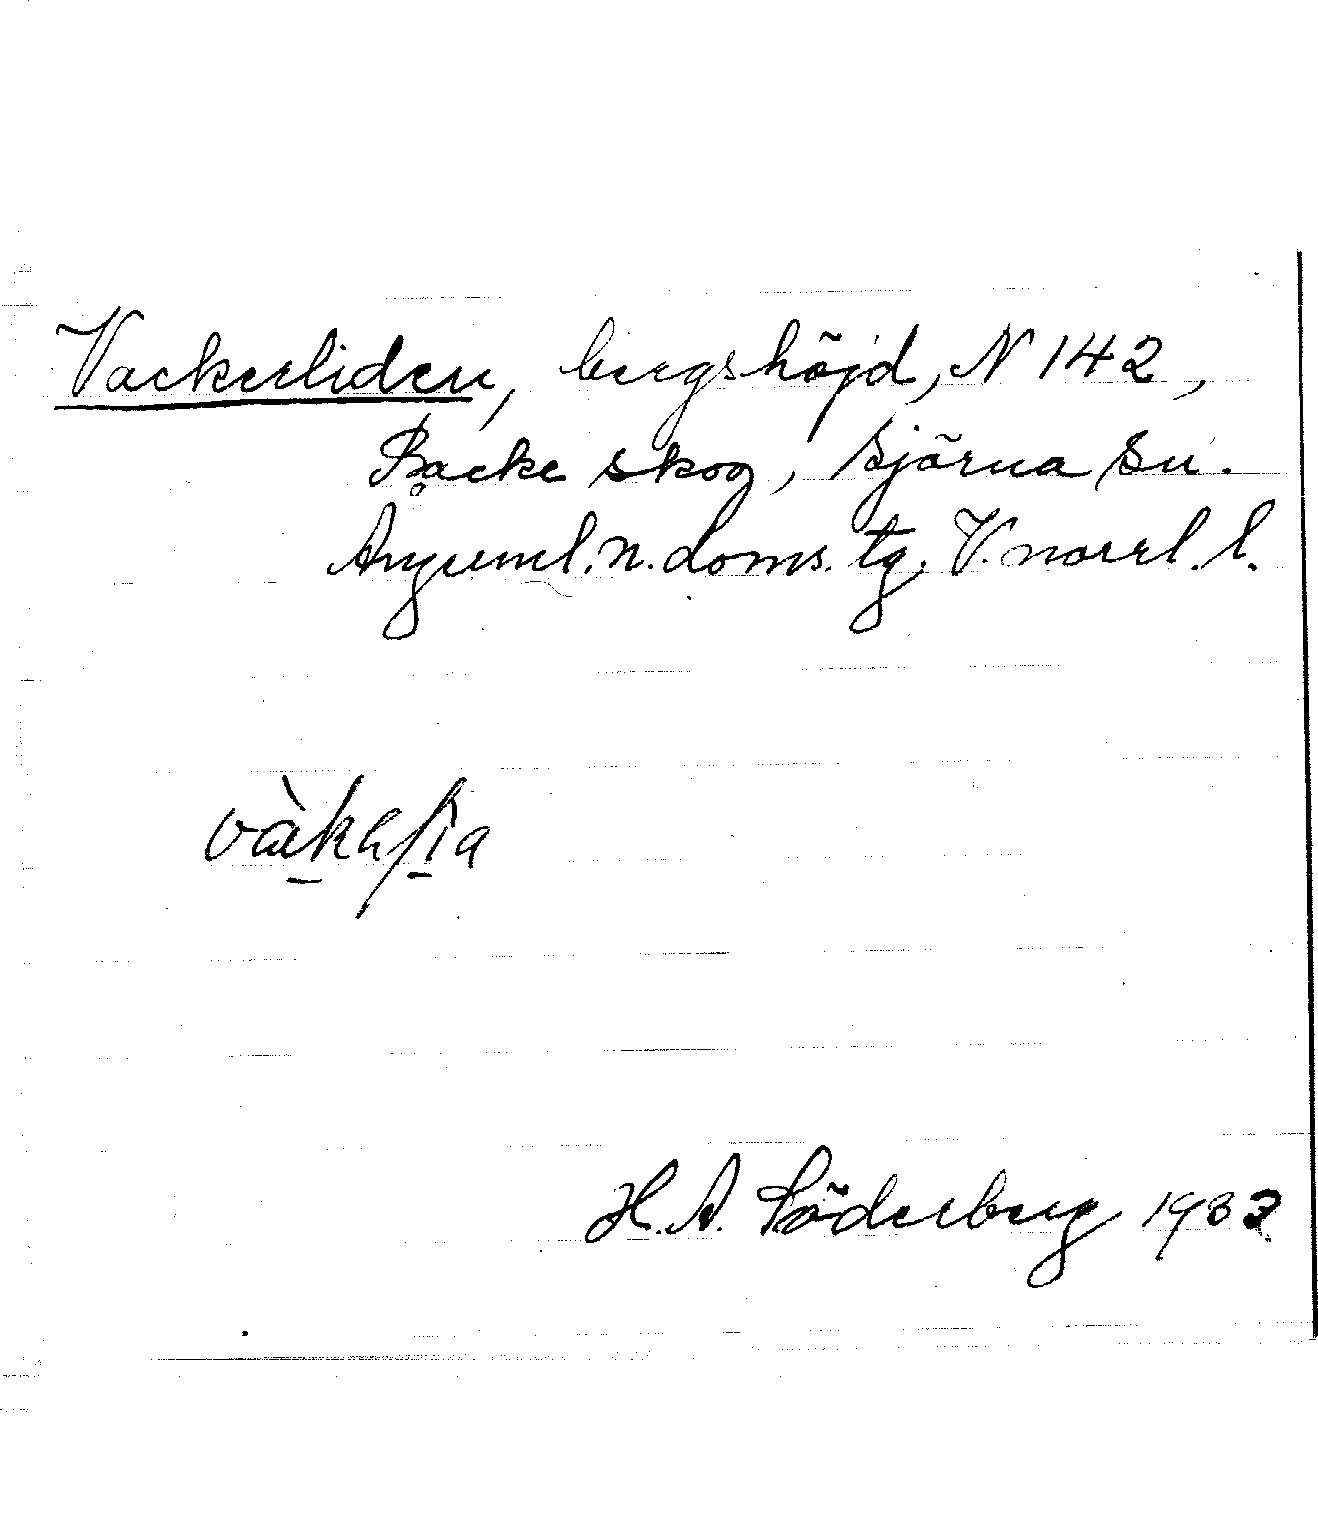 Vackerliden, bergshöjd, N 142,
Backe skog, Sjörna sn.
Ångerml. n. doms. tg. V. norrl. l.
H. A. Söderberg 1932